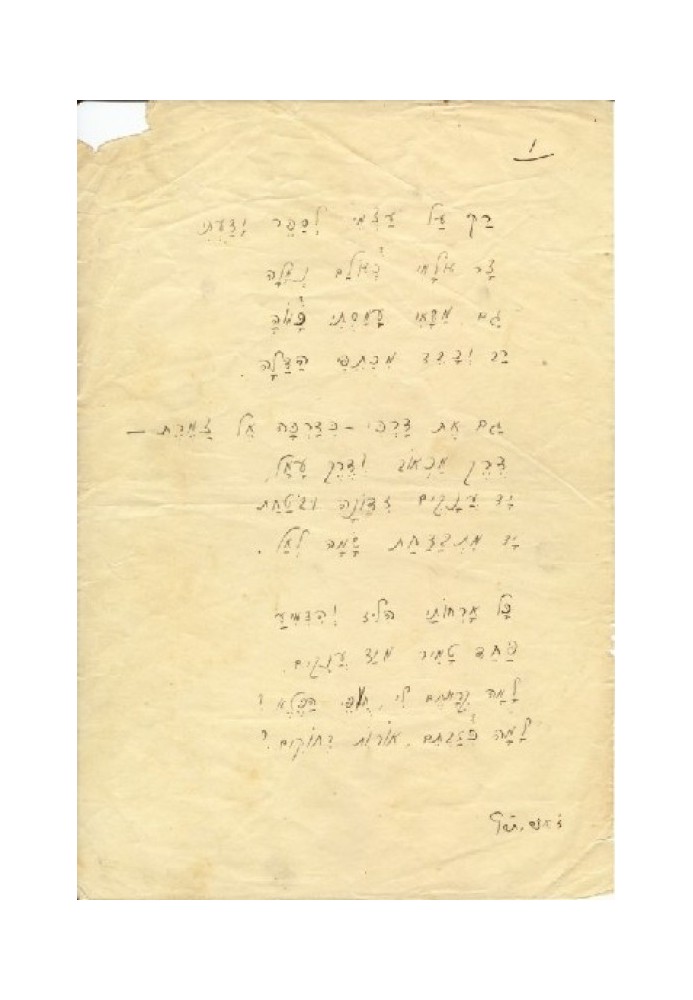 1
רַק עַל עַצְמִי לְסַפֵּר יָדַעְתִּי
צַר עֹלָמִי כְּעֹלַם נְמָלָה
גַּם מַשָּׂאִי עָמַסְתִּי כָּמוֹהָ
רַב וְכָבֵד מִכְּתֵפִי הַדַּלָּה.
גַּם אֶת דַּרְכִּי – כְּדַרְכָּהּ אֶל צַמֶּרֶת –
דֶּרֶךְ מַכְאוֹב וְדֶרֶךְ עָמָל,
יַד עֲנָקִים זְדוֹנָה וּבֹטַחַת
יַד מִתְבַּדַּחַת שָׂמָה לְאַל.
כָּל אָרְחוֹתַי הִלִּיז וְהִדְמִיעַ
פַּחַד טָמִיר מִיַּד עֲנָקִים.
לָמָּה קְרָאתֶם לִי, חוֹפֵי הַפֶּלֶא?
לָמָּה כְּזַבְתֶּם, אוֹרוֹת רְחוֹקִים?